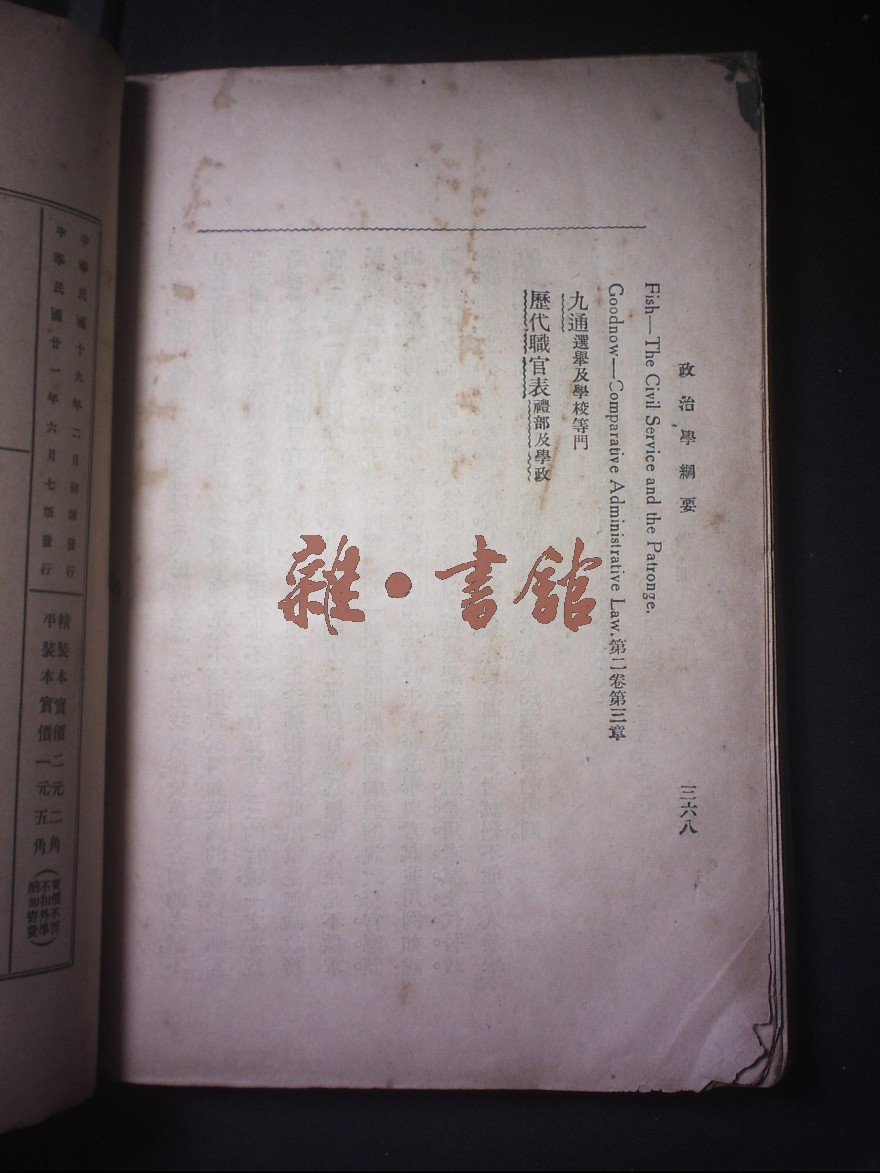 政治學綱要
三六八
Fish—The Civil Service and the Patronge.
Goodnow—Comparative Administrative Law. 第二卷第三章
九通選舉及學校等門
歷代職官表禮部及學政
中華民國十九年二月初版發行
中華民國廿一年六月七版發行
精裝本實價二元二角
平裝本實價一元五角
雜●書館